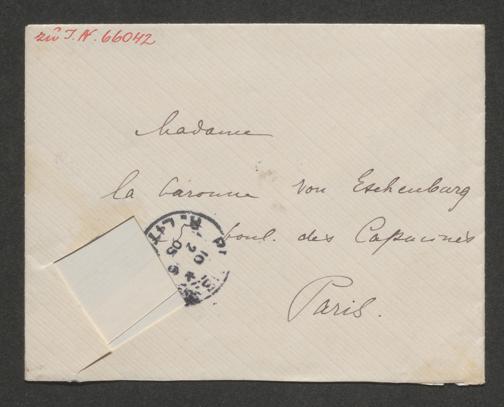 zu I. N. 66042
Madame
la baronne von Eschenburg
boul. des Capucines
Paris.
10
2
05